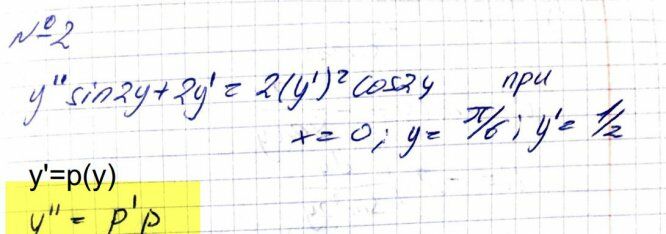 №2
y'' sin2y + 2y' = 2(y')² cos2y при
x = 0; y = π/6; y' = 1/2
y'=p(y)
y'' = p'p